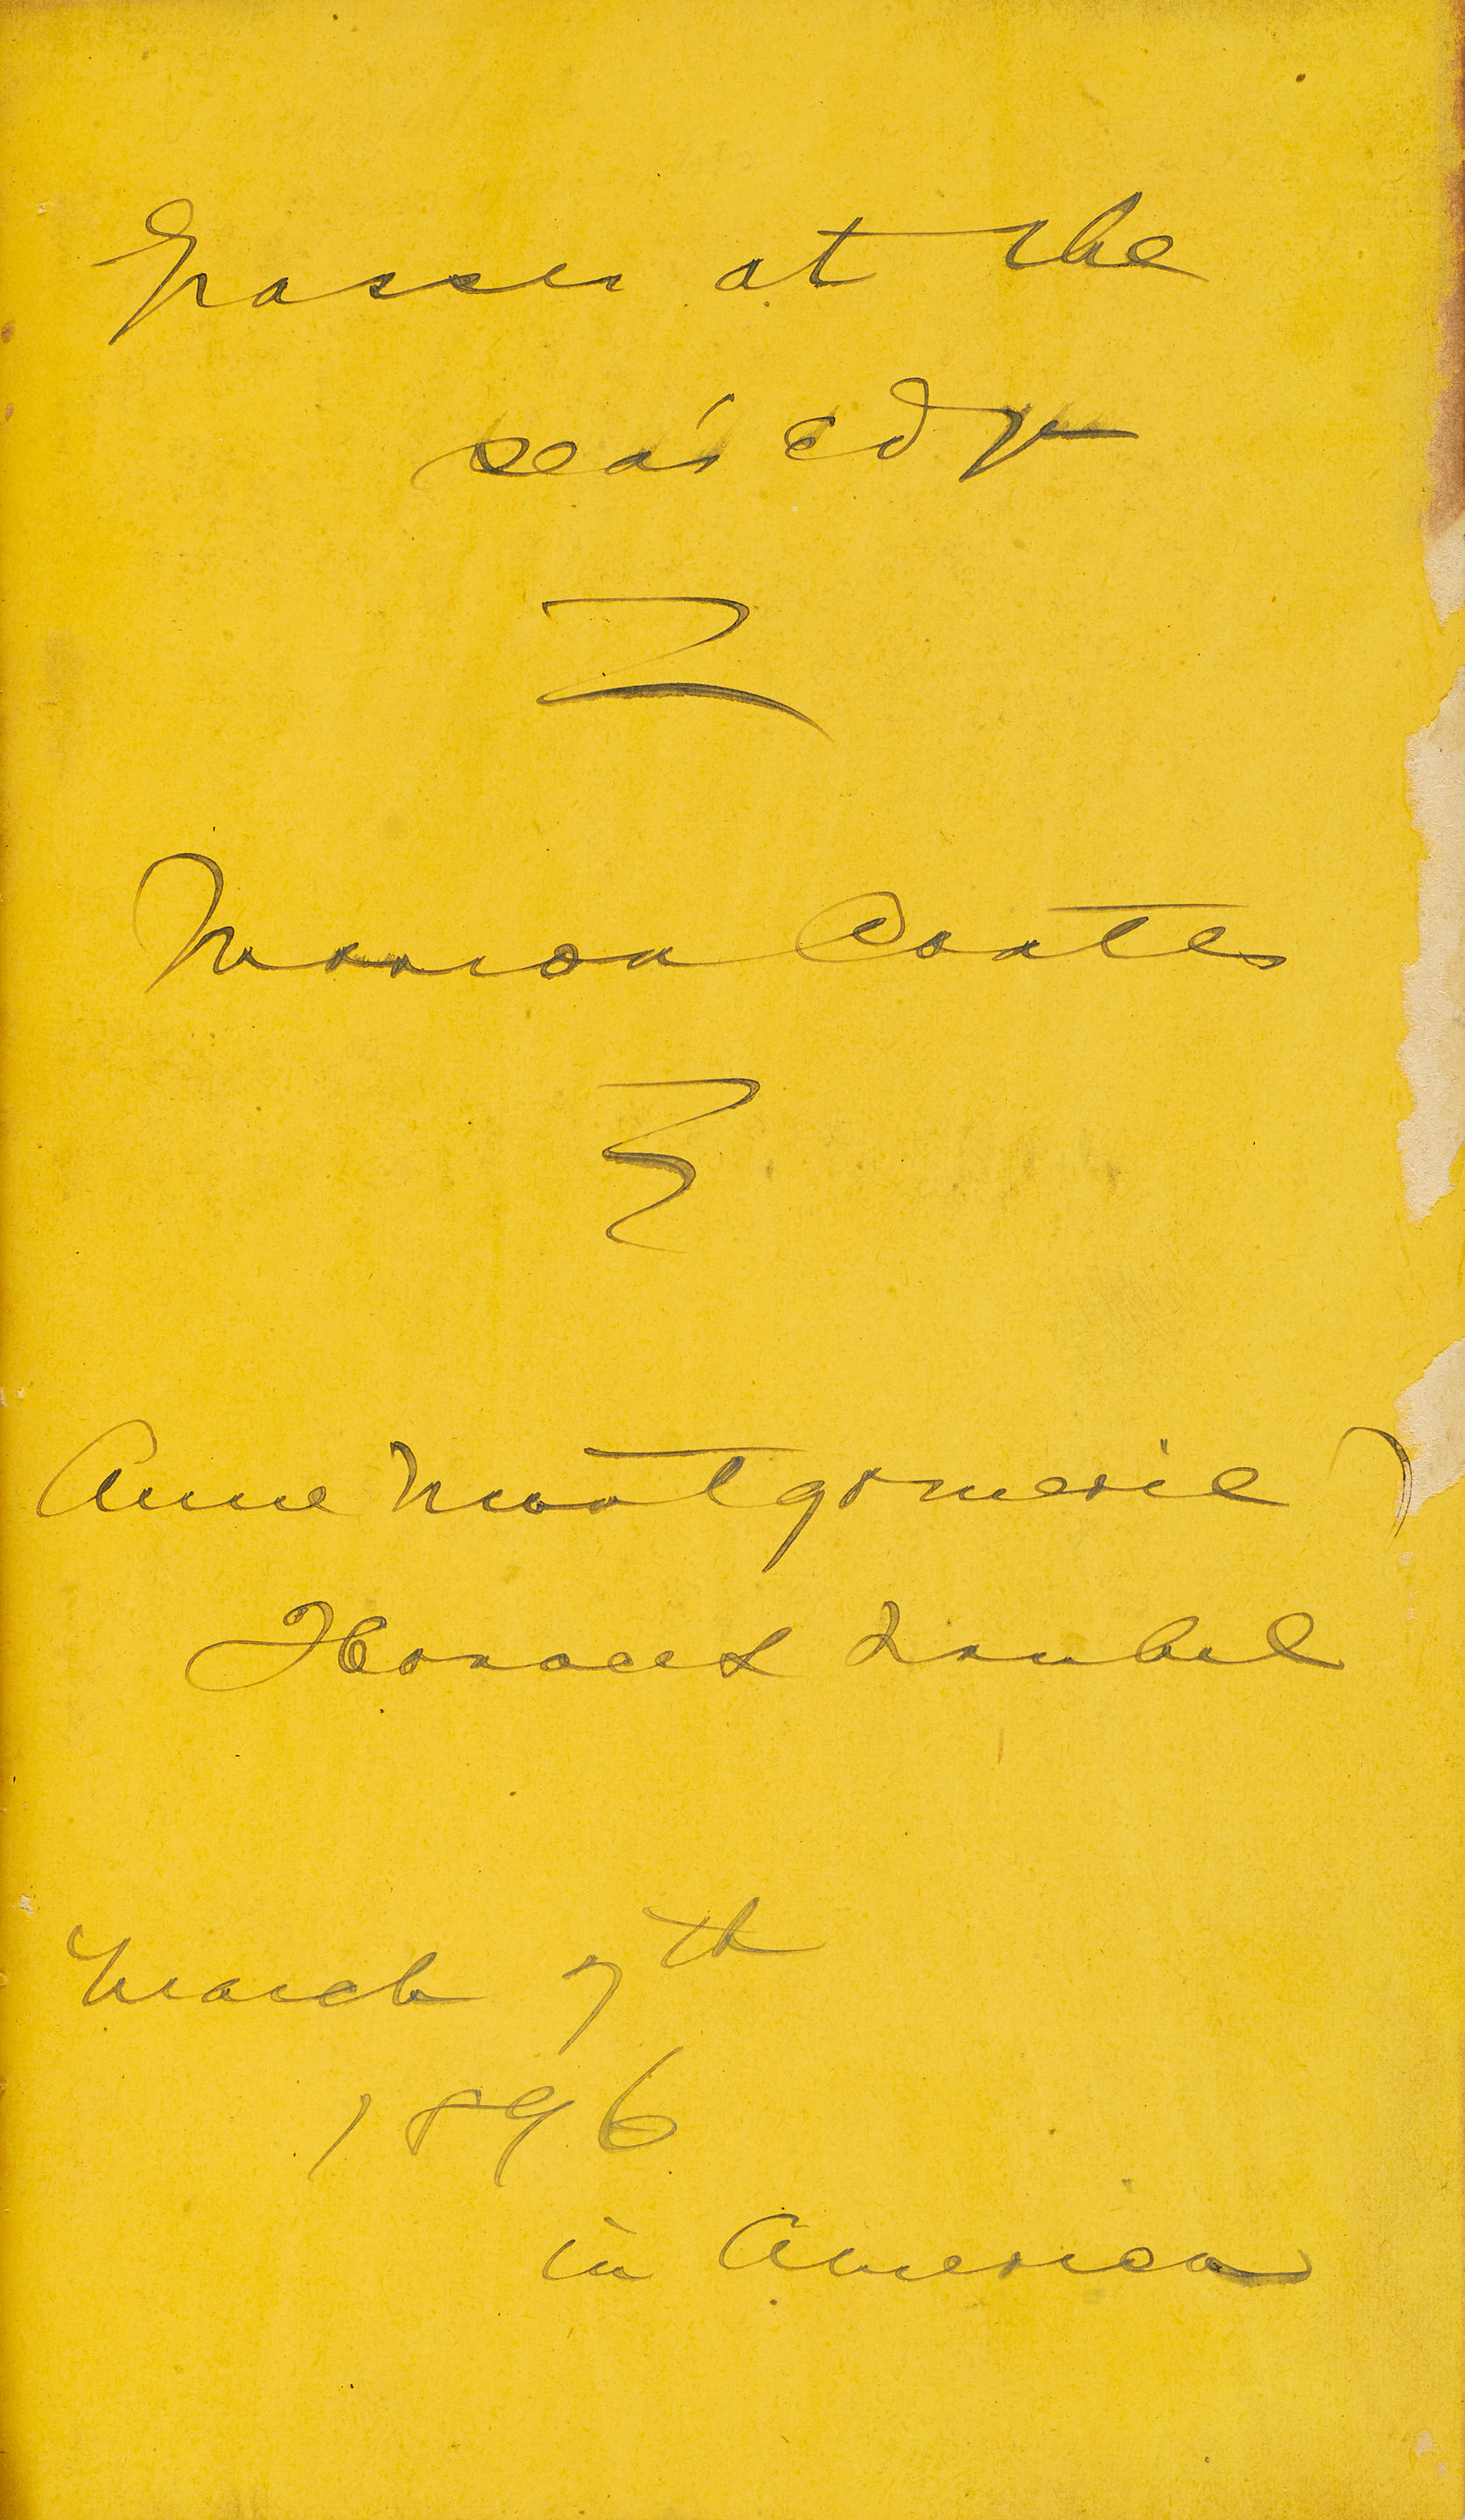 Grasses at the
sea's edge
Marion Coates
Anne Montgomerie
Horace L Traubel
March 7th
1896
in America